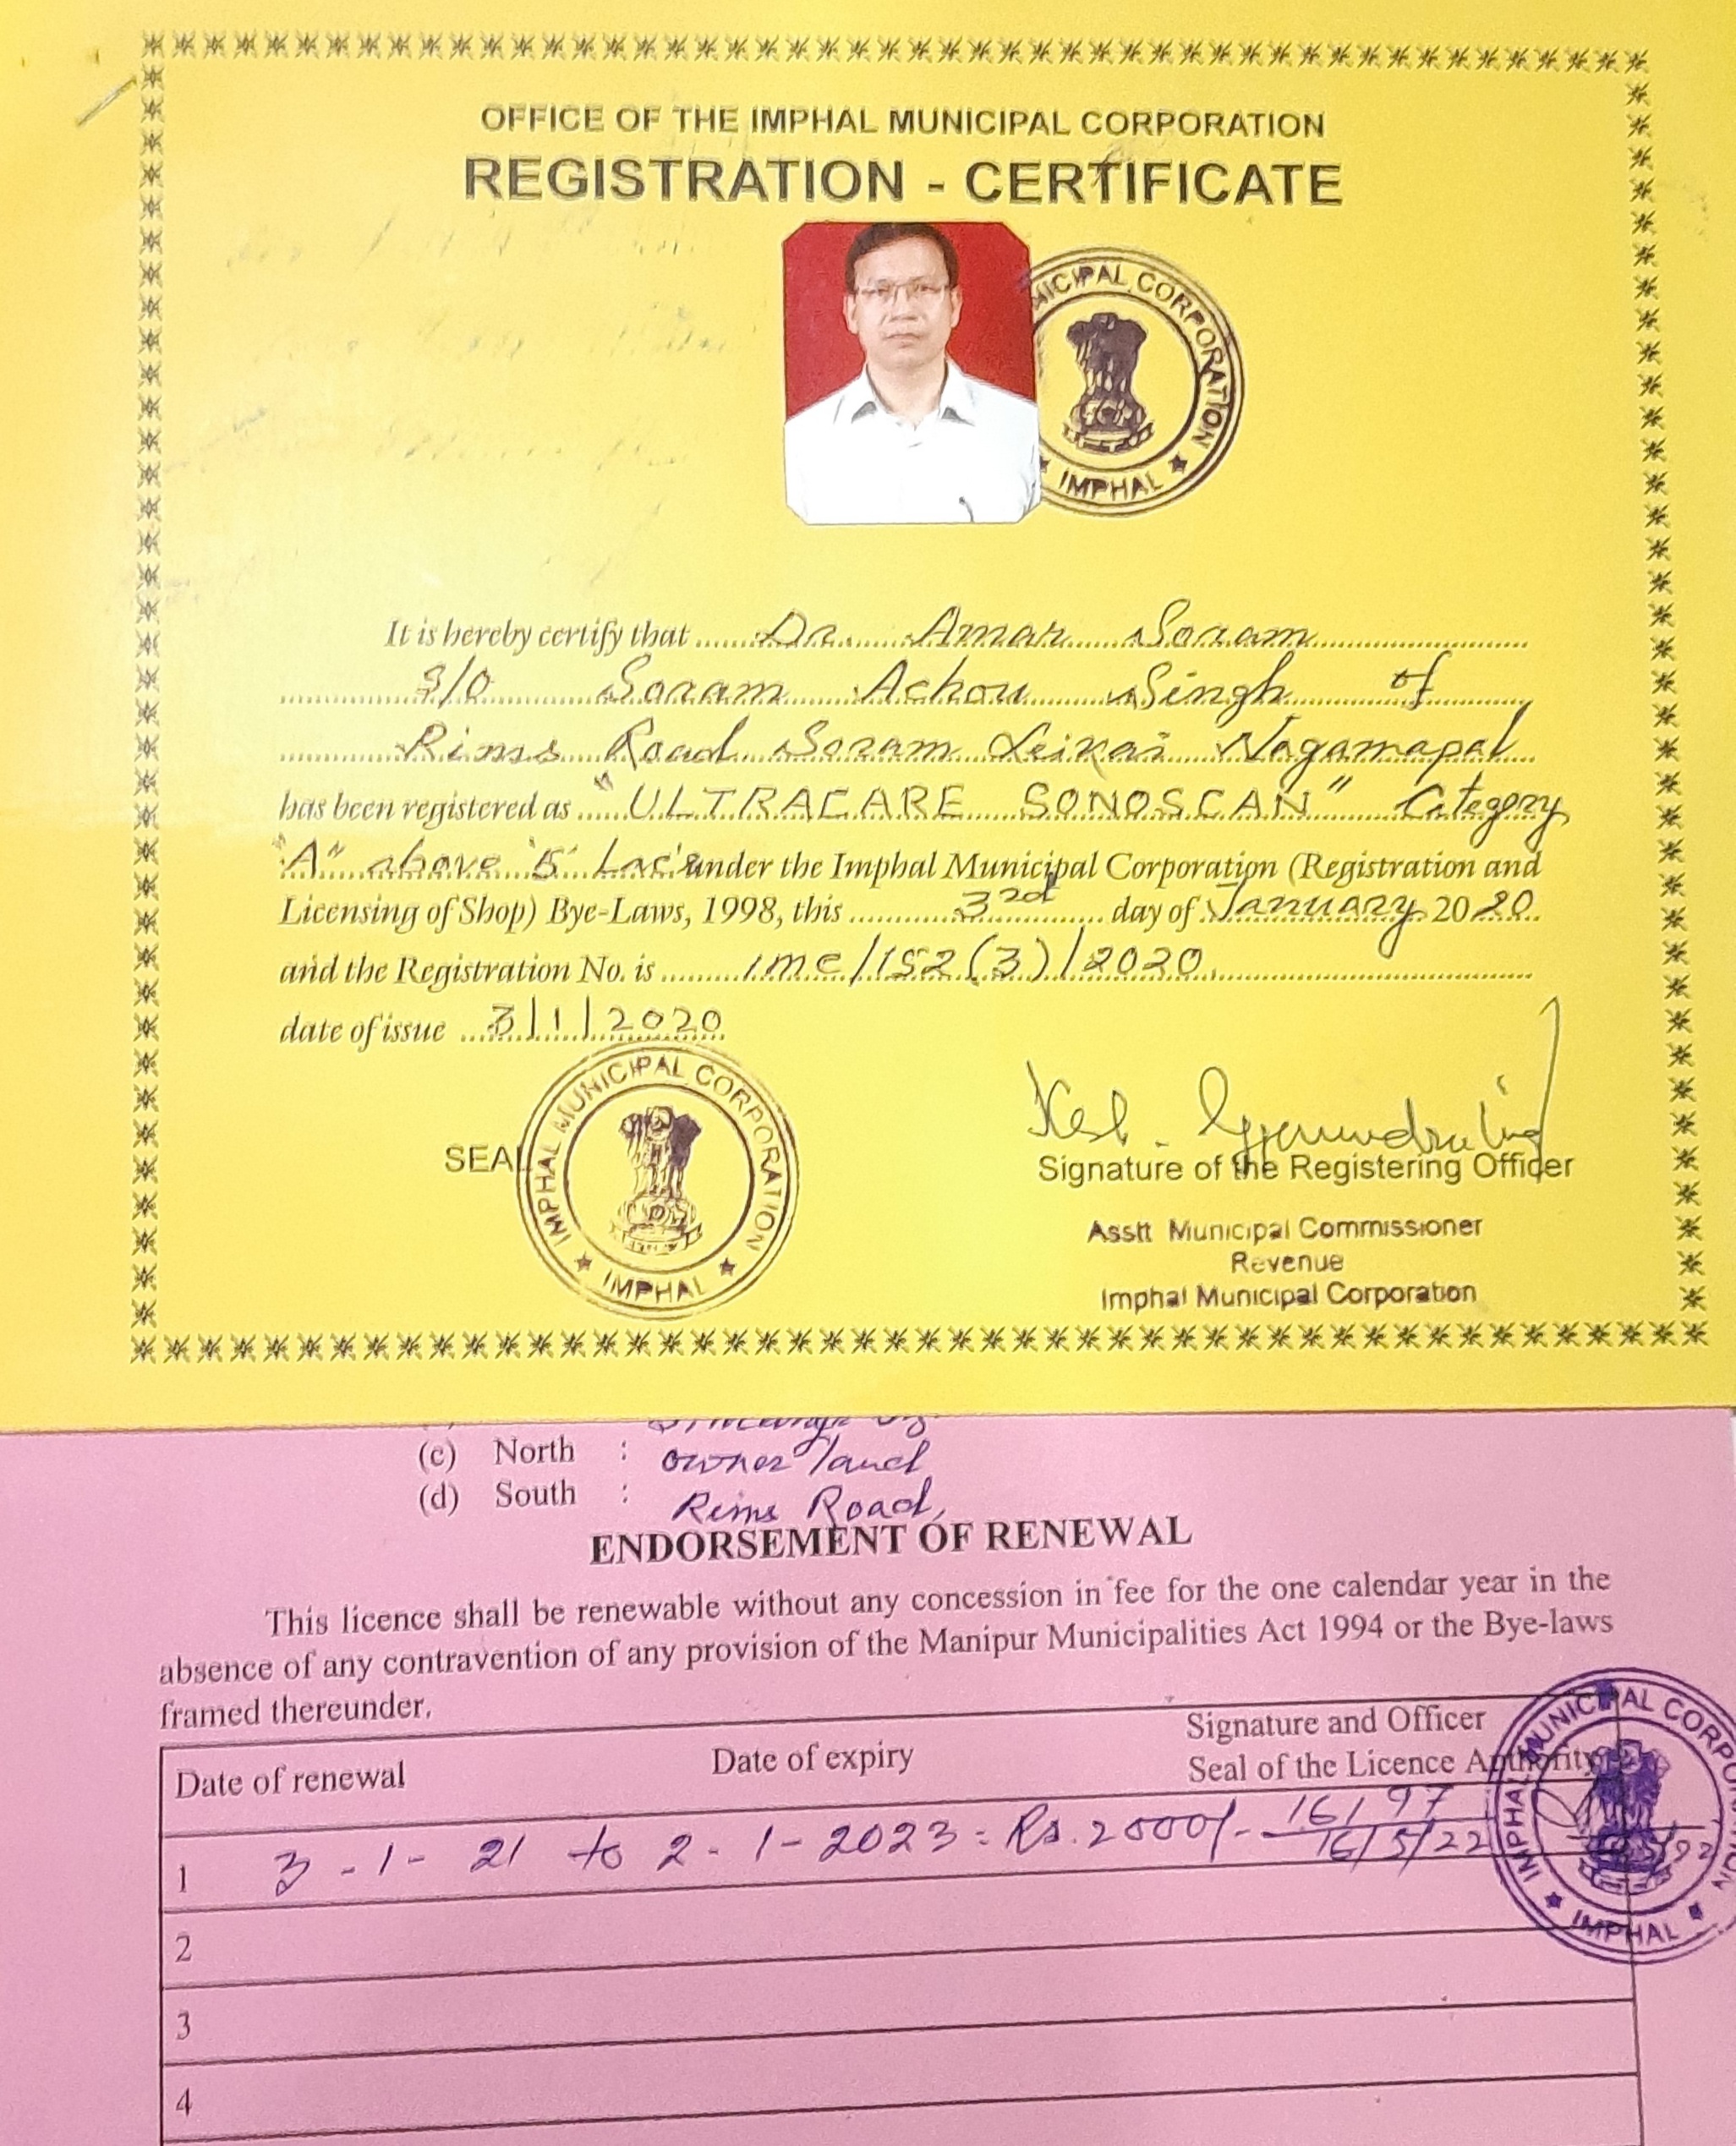 OFFICE OF THE IMPHAL MUNICIPAL CORPORATION
REGISTRATION - CERTIFICATE
MICIPAL CORPORATION
IMPHAL
It is hereby certify that Dr. Amar Soram
S/O Soram Achou Singh of
Rims Road Soram Leikai Nagamapal
has been registered as "ULTRACARE SONOSCAN" Category
"A" above '5' Lac's under the Imphal Municipal Corporation (Registration and
Licensing of Shop) Bye-Laws, 1998, this 3rd day of January 2020
and the Registration No. is IMC/152(3)/2020
date of issue 3/1/2020
IMPHAL MUNICIPAL CORPORATION
IMPHAL
SEAL
Signature of the Registering Officer
Asstt Municipal Commissioner
Revenue
Imphal Municipal Corporation
(c) North : owner land
(d) South : Rims Road,
ENDORSEMENT OF RENEWAL
This licence shall be renewable without any concession in fee for the one calendar year in the
absence of any contravention of any provision of the Manipur Municipalities Act 1994 or the Bye-laws
framed thereunder.
Date of renewal Date of expiry Signature and Officer
Seal of the Licence Authority
1 3-1-21 to 2-1-2023 = Rs. 2000/- 16/97
16/5/22
IMPHAL MUNICIPAL CORPORATION
IMPHAL
2
3
4